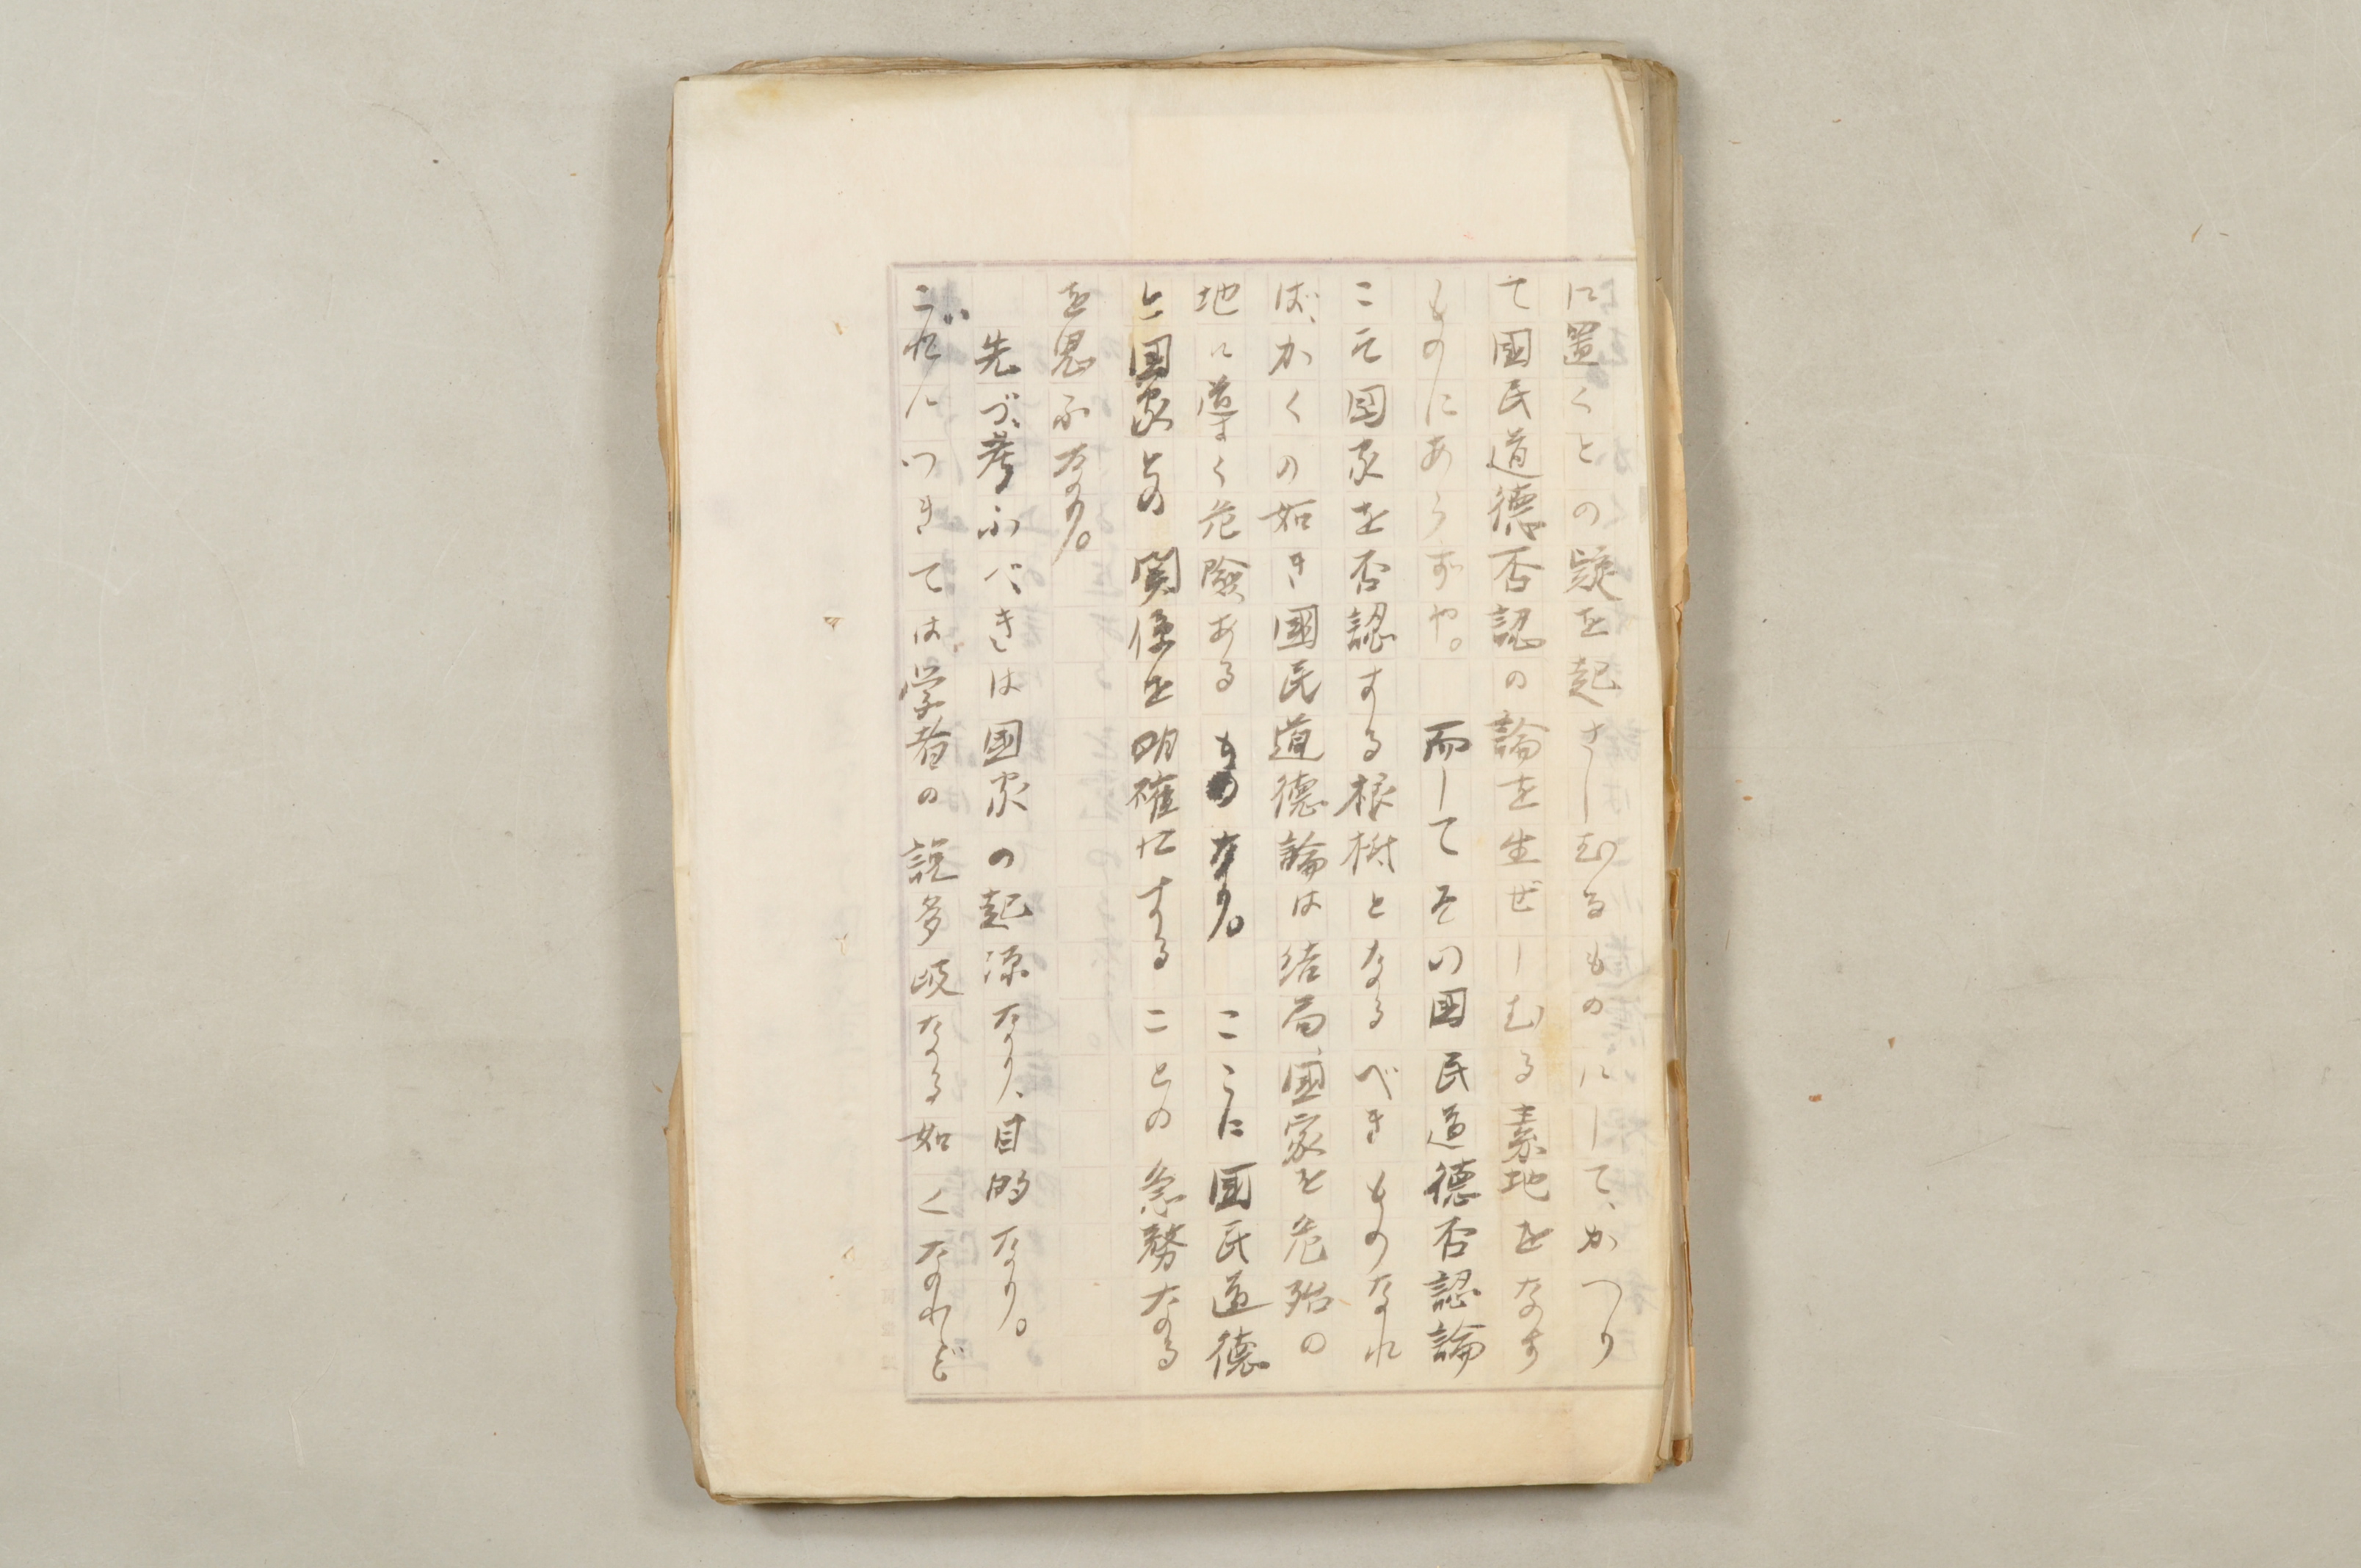 に置くとの疑を起さしむるものにして、かつり
て國民道徳否認の論を生ぜしむる素地をなす
ものにあらずや。而してその國民道徳否認論
こそ國家を否認する根樹となるべきものなれ
ば、かくの如き國民道徳論は結局國家を危殆の
地に導く危険あるものなり。ここに國民道徳
と国家との関係を明確にすることの急務なる
を思ふなり。
先づ考ふべきは國家の起源なり、目的なり。
これにつきては学者の説多岐なる如くなれど